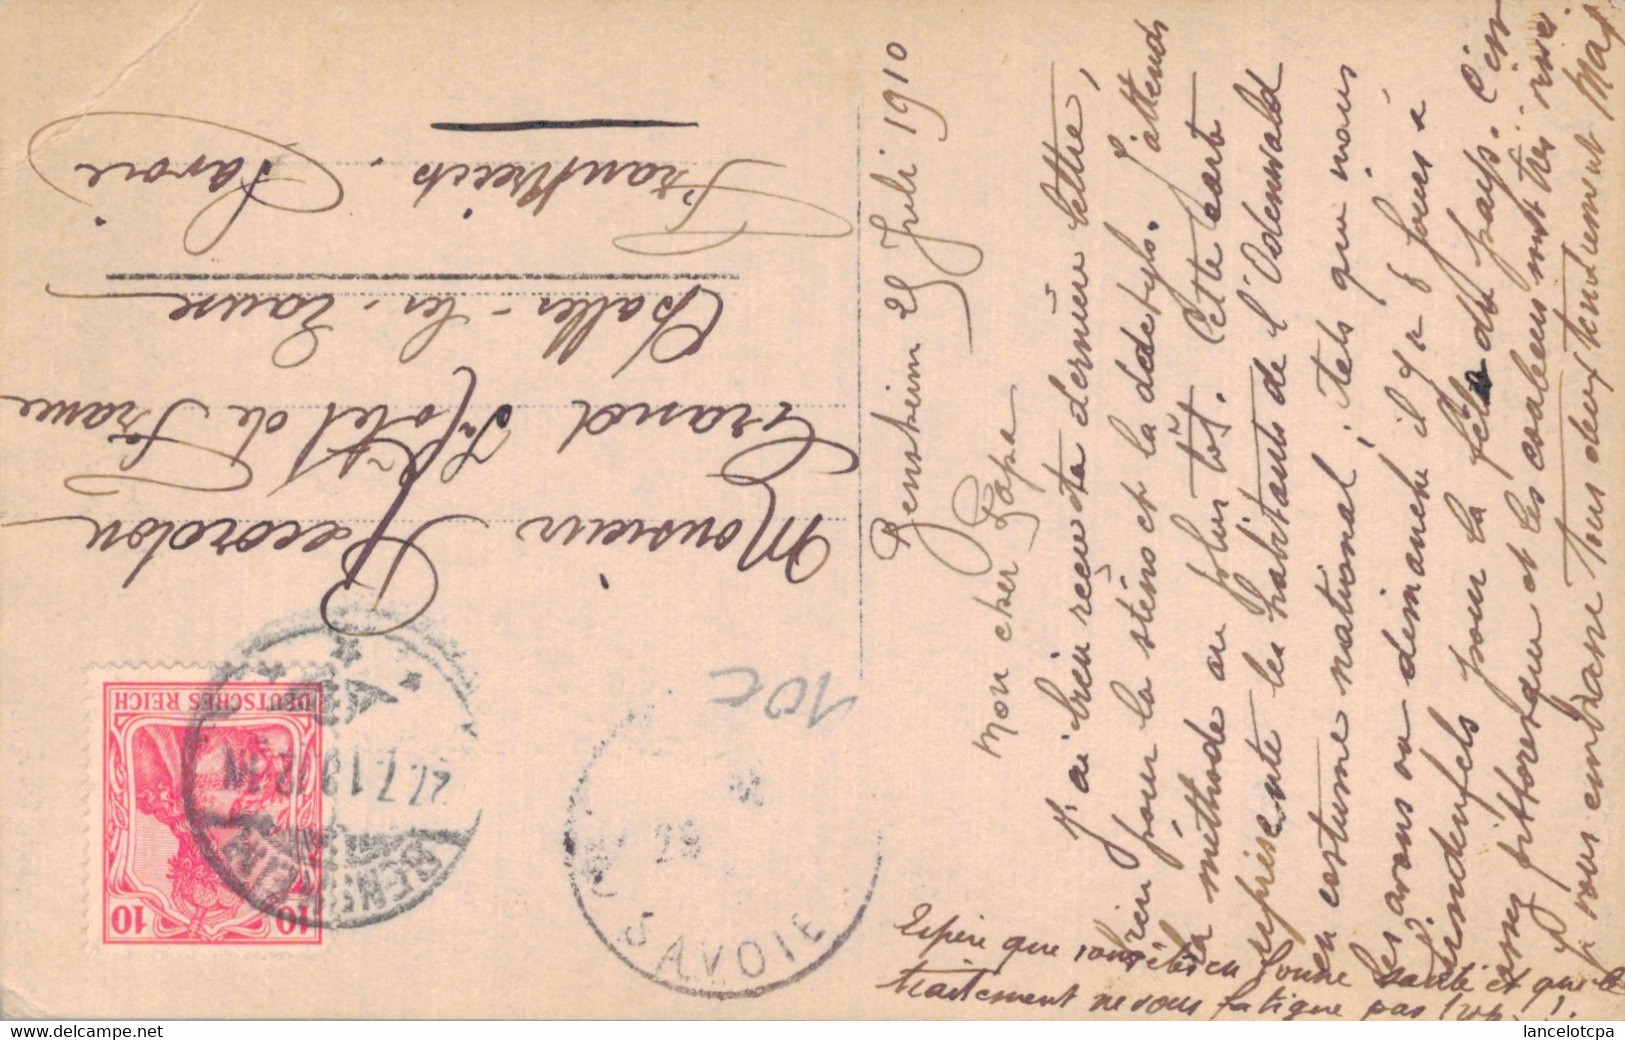 Bensheim 25 Juli 1910
Mon cher Papa
J'ai bien reçu ta dernière lettre,
bien pour la sténo et la dactylo. J'attends
la méthode au plus tôt. Cette carte
représente les habitants de l'Odenwald
en costume national; tels que nous
les avons vu dimanche il y a 8 jours à
Lindenfels pour la fête du pays. C'est
assez pittoresque et les couleurs sont très vives.
Je vous embrasse tous deux tendrement Max
Espère que vous êtes en bonne santé et que le
traitement ne vous fatigue pas trop!!
Monsieur Recordon
Grand Hôtel de France
Challes-les-Eaux
Frankreich.
Savoie
10c
DEUTSCHES REICH
10 10
BENSHEIM
SAVOIE
28
www.delcampe.net
lancelotcpa